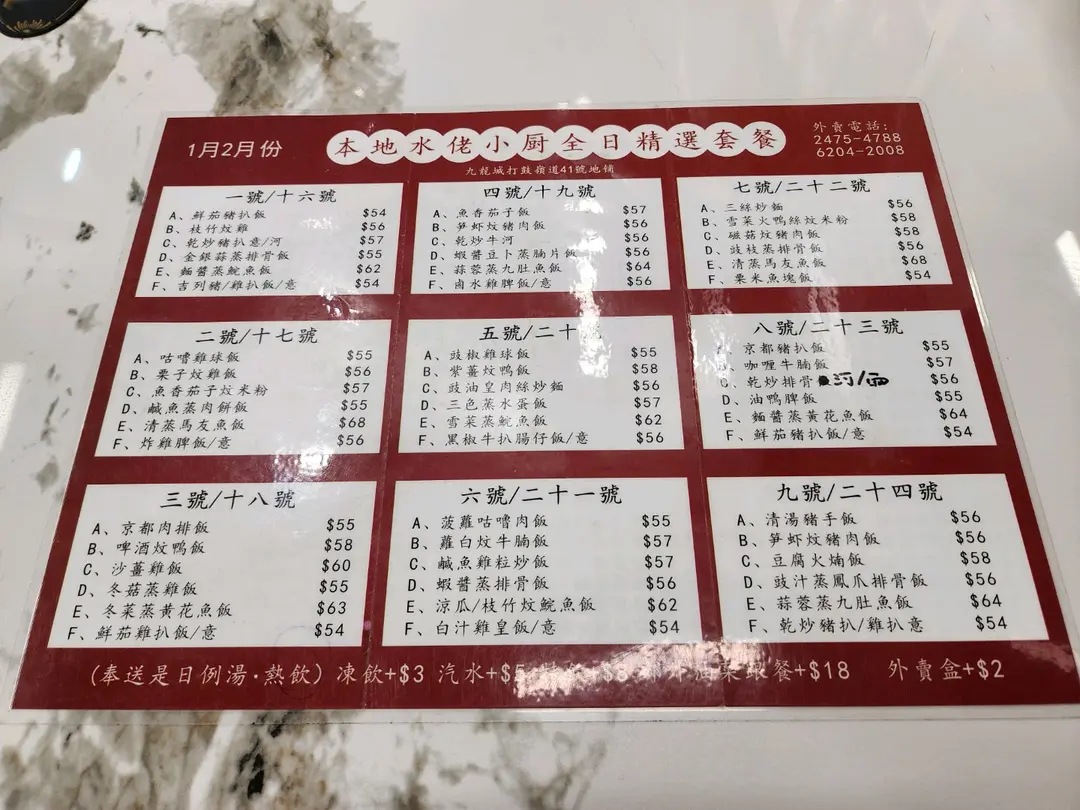 1月2月份
本地水佬小厨全日精選套餐
外賣電話:
2475-4788
6204-2008
九龍城打鼓嶺道41號地舖
一號/十六號
A、鮮茄豬扒飯 $54
B、枝竹炆雞 $56
C、乾炒豬扒意/河 $57
D、金銀蒜蒸排骨飯 $55
E、麵醬蒸鯇魚飯 $62
F、吉列豬/雞扒飯/意 $54
四號/十九號
A、魚香茄子飯 $57
B、笋虾炆豬肉飯 $56
C、乾炒牛河 $56
D、蝦醬豆卜蒸腩片飯 $56
E、蒜蓉蒸九肚魚飯 $64
F、鹵水雞脾飯/意 $56
七號/二十二號
A、三絲炒麵 $56
B、雪菜火鴨絲炆米粉 $58
C、磁菇炆豬肉飯 $58
D、豉枝蒸排骨飯 $56
E、清蒸馬友魚飯 $68
F、粟米魚塊飯 $54
二號/十七號
A、咕嚕雞球飯 $55
B、栗子炆雞飯 $56
C、魚香茄子炆米粉 $57
D、鹹魚蒸肉餅飯 $55
E、清蒸馬友魚飯 $68
F、炸雞脾飯/意 $56
五號/二十號
A、豉椒雞球飯 $55
B、紫薑炆鴨飯 $58
C、豉油皇肉絲炒麵 $56
D、三色蒸水蛋飯 $57
E、雪菜蒸鯇魚飯 $62
F、黑椒牛扒腸仔飯/意 $56
八號/二十三號
A、京都豬扒飯 $55
B、咖喱牛腩飯 $57
C、乾炒排骨河/面 $56
D、油鴨脾飯 $55
E、麵醬蒸黃花魚飯 $64
F、鮮茄豬扒飯/意 $54
三號/十八號
A、京都肉排飯 $55
B、啤酒炆鴨飯 $58
C、沙薑雞飯 $60
D、冬菇蒸雞飯 $55
E、冬菜蒸黃花魚飯 $63
F、鮮茄雞扒飯/意 $54
六號/二十一號
A、菠蘿咕嚕肉飯 $55
B、蘿白炆牛腩飯 $57
C、鹹魚雞粒炒飯 $57
D、蝦醬蒸排骨飯 $56
E、涼瓜/枝竹炆鯇魚飯 $62
F、白汁雞皇飯/意 $54
九號/二十四號
A、清湯豬手飯 $56
B、笋虾炆豬肉飯 $56
C、豆腐火腩飯 $58
D、豉汁蒸鳳爪排骨飯 $56
E、蒜蓉蒸九肚魚飯 $64
F、乾炒豬扒/雞扒意 $54
(奉送是日例湯·熱飲) 凍飲+$3 汽水+$5 +$8 油菜跟餐+$18 外賣盒+$2